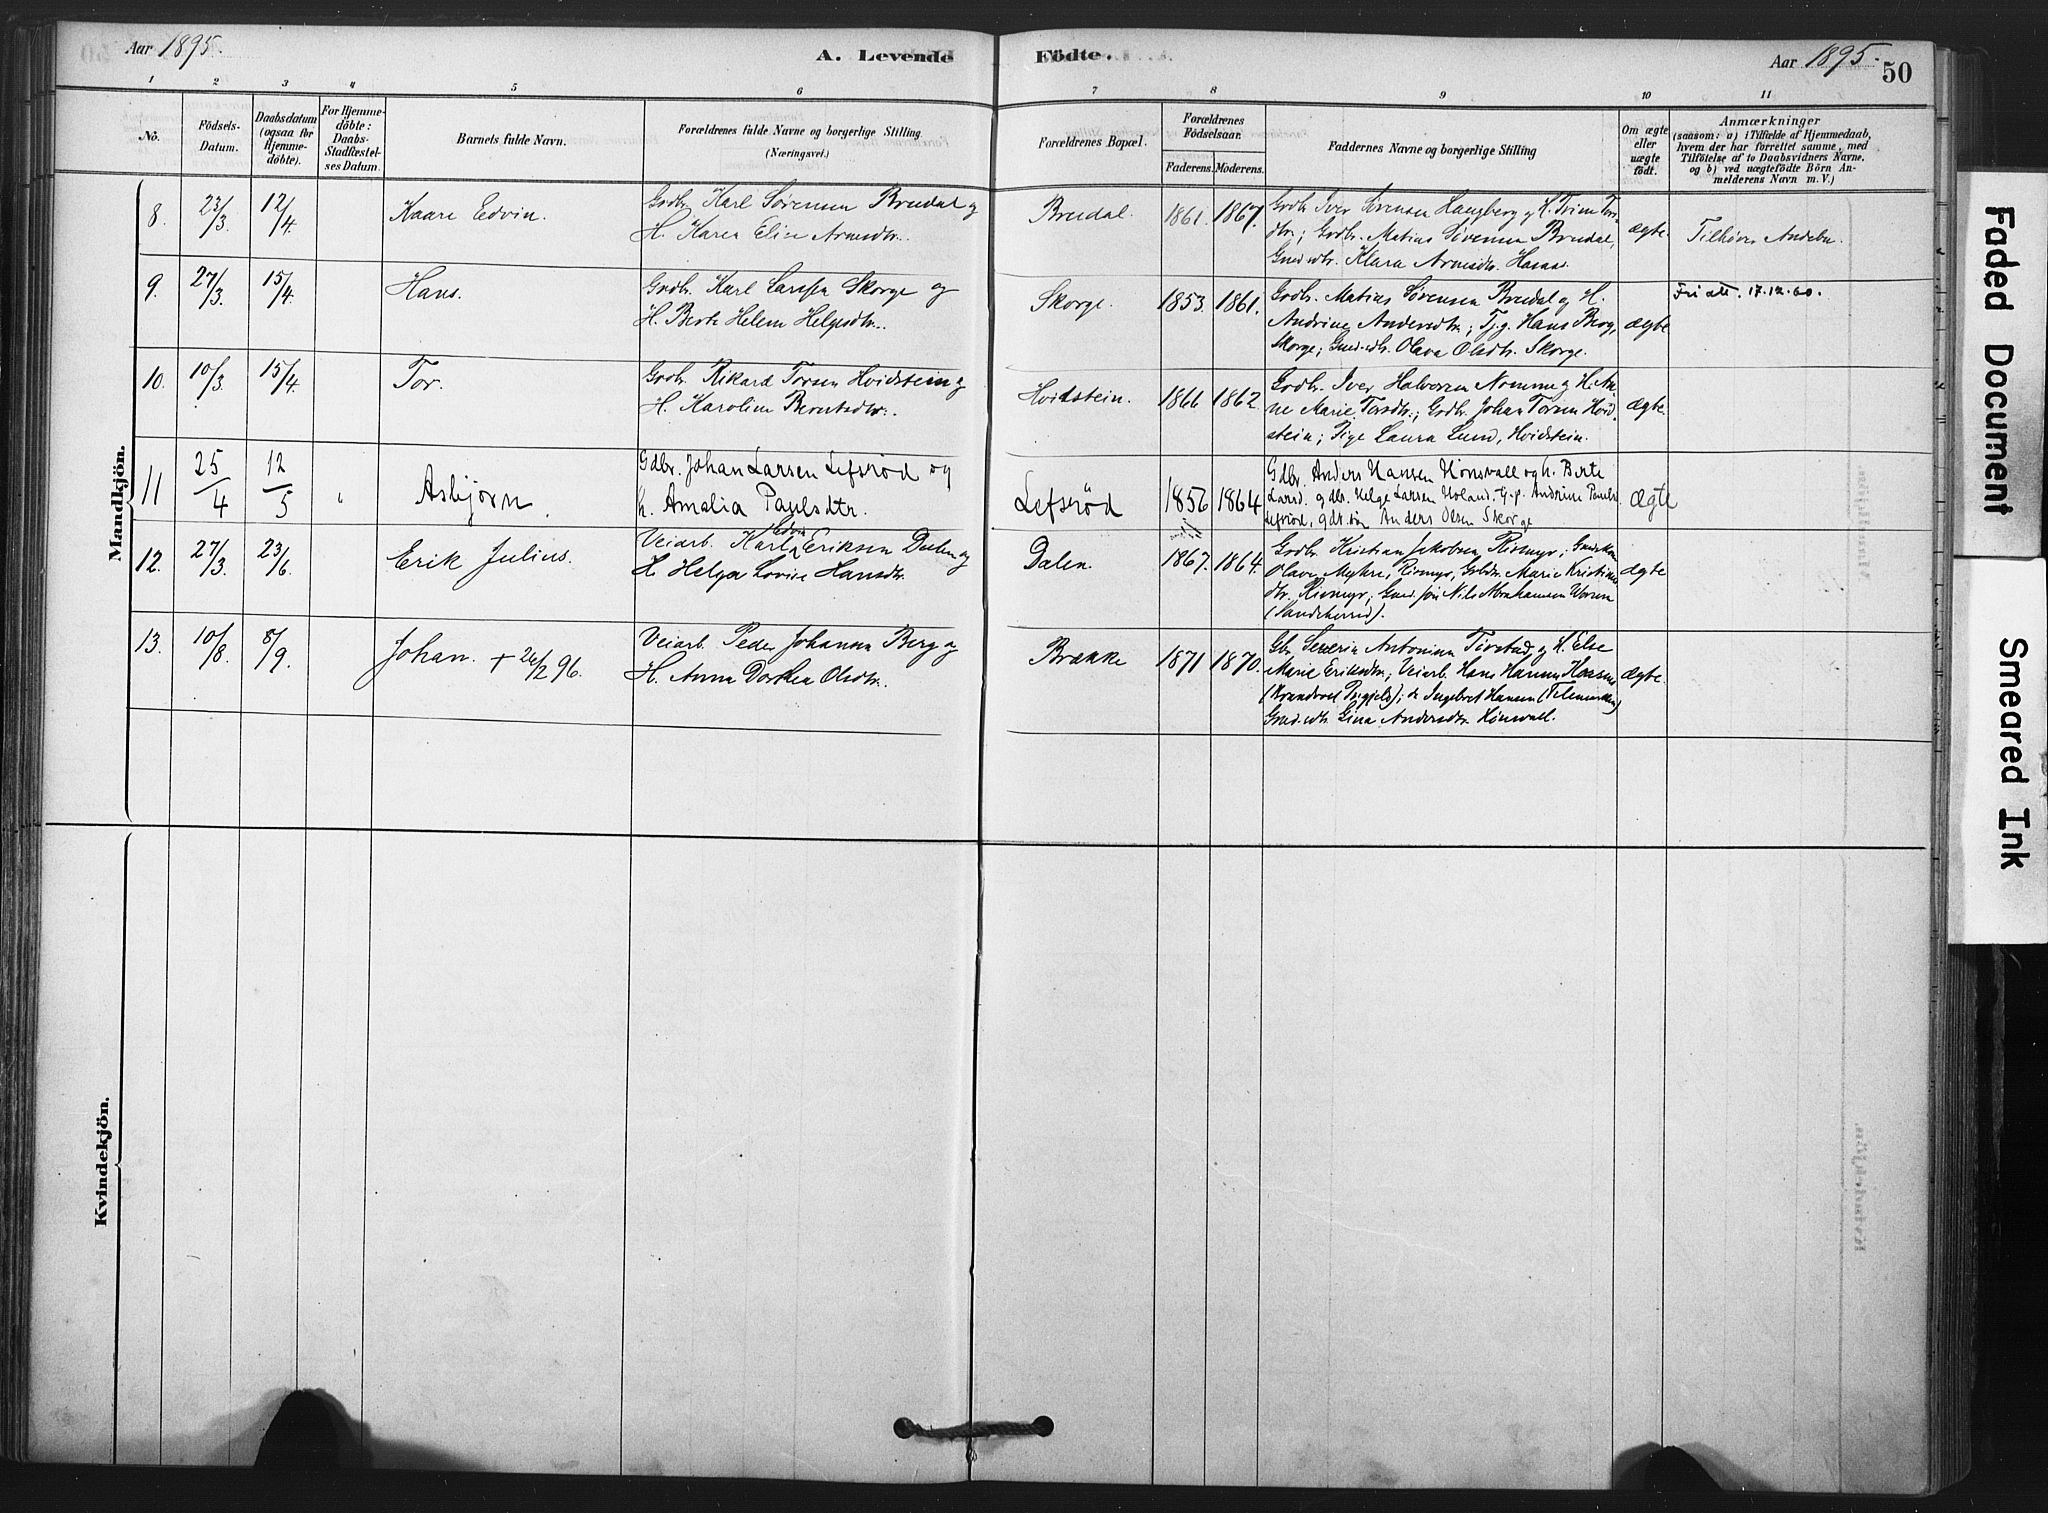 Aar 1895.
A. Levende Födte.
Aar 1895.
50
1 2 3 4 5 6 7 8 9 10 11
No.
Födsels-
Datum.
Daabsdatum
(ogsaa for
Hjemme-
döbte).
For Hjemme-
döbte:
Daabs-
Stadfæstel-
ses Datum.
Barnets fulde Navn.
Forældrenes fulde Navne og borgerlige Stilling.
(Næringsvei.)
Forældrenes Bopæl.
Forældrenes
Födselsaar.
Faderens. Moderens.
Faddernes Navne og borgerlige Stilling
Om ægte
eller
uægte
födt.
Anmærkninger
(saasom: a) i Tilfælde af Hjemmedaab,
hvem der har forrettet samme, med
Tilföielse af to Daabsvidners Navne,
og b) ved uægtefödte Börn An-
melderens Navn m. V.)
Mandkjön.
8. 23/3. 12/4. Kaare Edvin.
Gdbr. Karl Sørensen Bredal og
H. Karen Elise Arnesdtr.
Bredal. 1861. 1867.
Gdbr. Iver Sørensen Haugberg og H.
Gdbr. Matias Sørensen Bredal,
Klara Arnesdtr.
ægte.
Tilhører Andebu.
9. 27/3. 15/4. Hans.
Gdbr. Karl Larsen Skorge og
H. Berte Helene Helgesdtr.
Skorge. 1853. 1861.
Gdbr. Matias Sørensen Bredal og H.
Andrine Andersdtr.; Hans Berg,
Skorge; Olava Olsdtr. Skorge.
ægte
Fri att. 17.12.60.
10. 10/3. 15/4. Tor.
Gdbr. Rikard Torsen Hvidstein og
H. Karoline Berntsdtr.
Hvidstein. 1866 1862.
Gdbr. Iver Halvorsen Nomme og H. An-
ne Marie Torsdtr.; Gdbr. Johan Torsen Hvid-
stein; Pige Laura Lund, Hvidstein.
ægte.
11 25/4 12/5 " Asbjørn.
Gdbr. Johan Larsen Lefsrød og
h. Amalia Paulsdtr.
Lefsrød 1856 1864
Gdbr. Anders Hansen Hönsvall og h. Berte
Larsd. gdbr. Helge Larsen Holand. G.p. Andrine Pauls
Lefsrød, gdb. søn Anders Olsen Skorge
ægte
12. 27/3. 23/6. Erik Julius.
Edvin
Veiarb. Karl Eriksen Dalen og
H. Helga Lovise Hansdtr.
Dalen. 1867. 1864.
Gdbr. Kristian Jakobsen Rismyr;
Olava Myhre, Rismyr, Marie Kristians
dtr. Rismyr; Nils Abrahamsen
(Sandeherred).
ægte
13. 10/8. 8/9. Johan. + 26/2 96.
Veiarb. Peder Johansen Berg og
H. Anna Dorthea Olsdtr.
Brække 1871 1870.
Gbr. Severin Antonsen og H. Else
Marie Eriksdtr.; Veiarb. Hans Hansen
Ingebret Hansen (Telemarken)
Gina Andersdtr. Hönsvall.
ægte.
Kvindekjön.
Faded Document
Smeared Ink